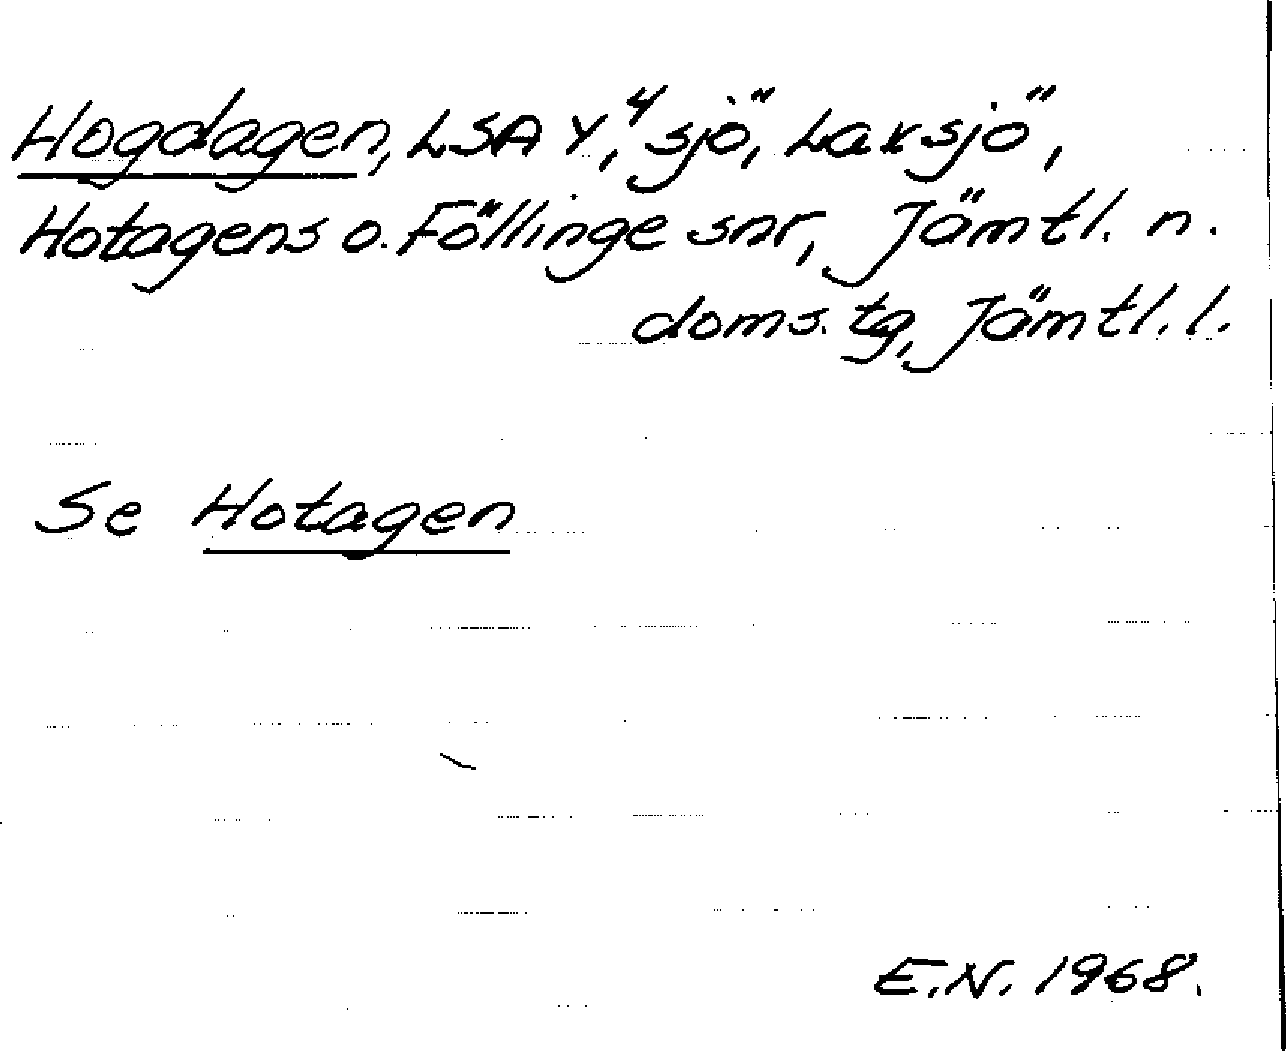 Hogdagen, LSA Y, "sjö", Laxsjö",
Hotagens o. Föllinge snr, Jämtl. n.
doms. tg, Jämtl. l.
Se Hotagen
E.N. 1968.